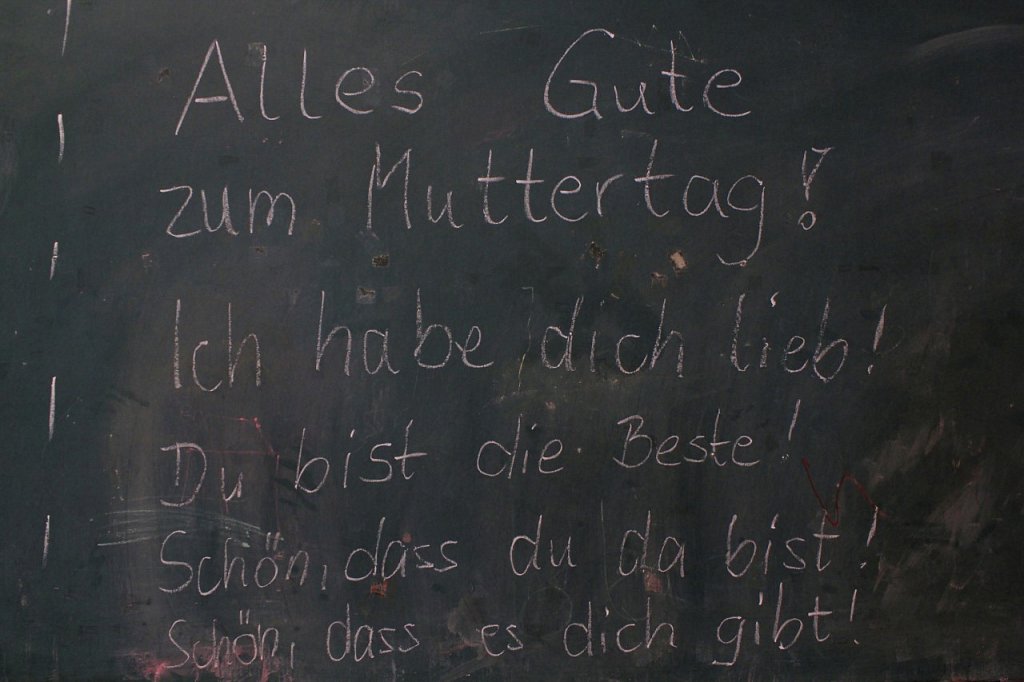 Alles Gute
zum Muttertag!
Ich habe dich lieb!
Du bist die Beste!
Schön, dass du da bist!
Schön, dass es dich gibt!